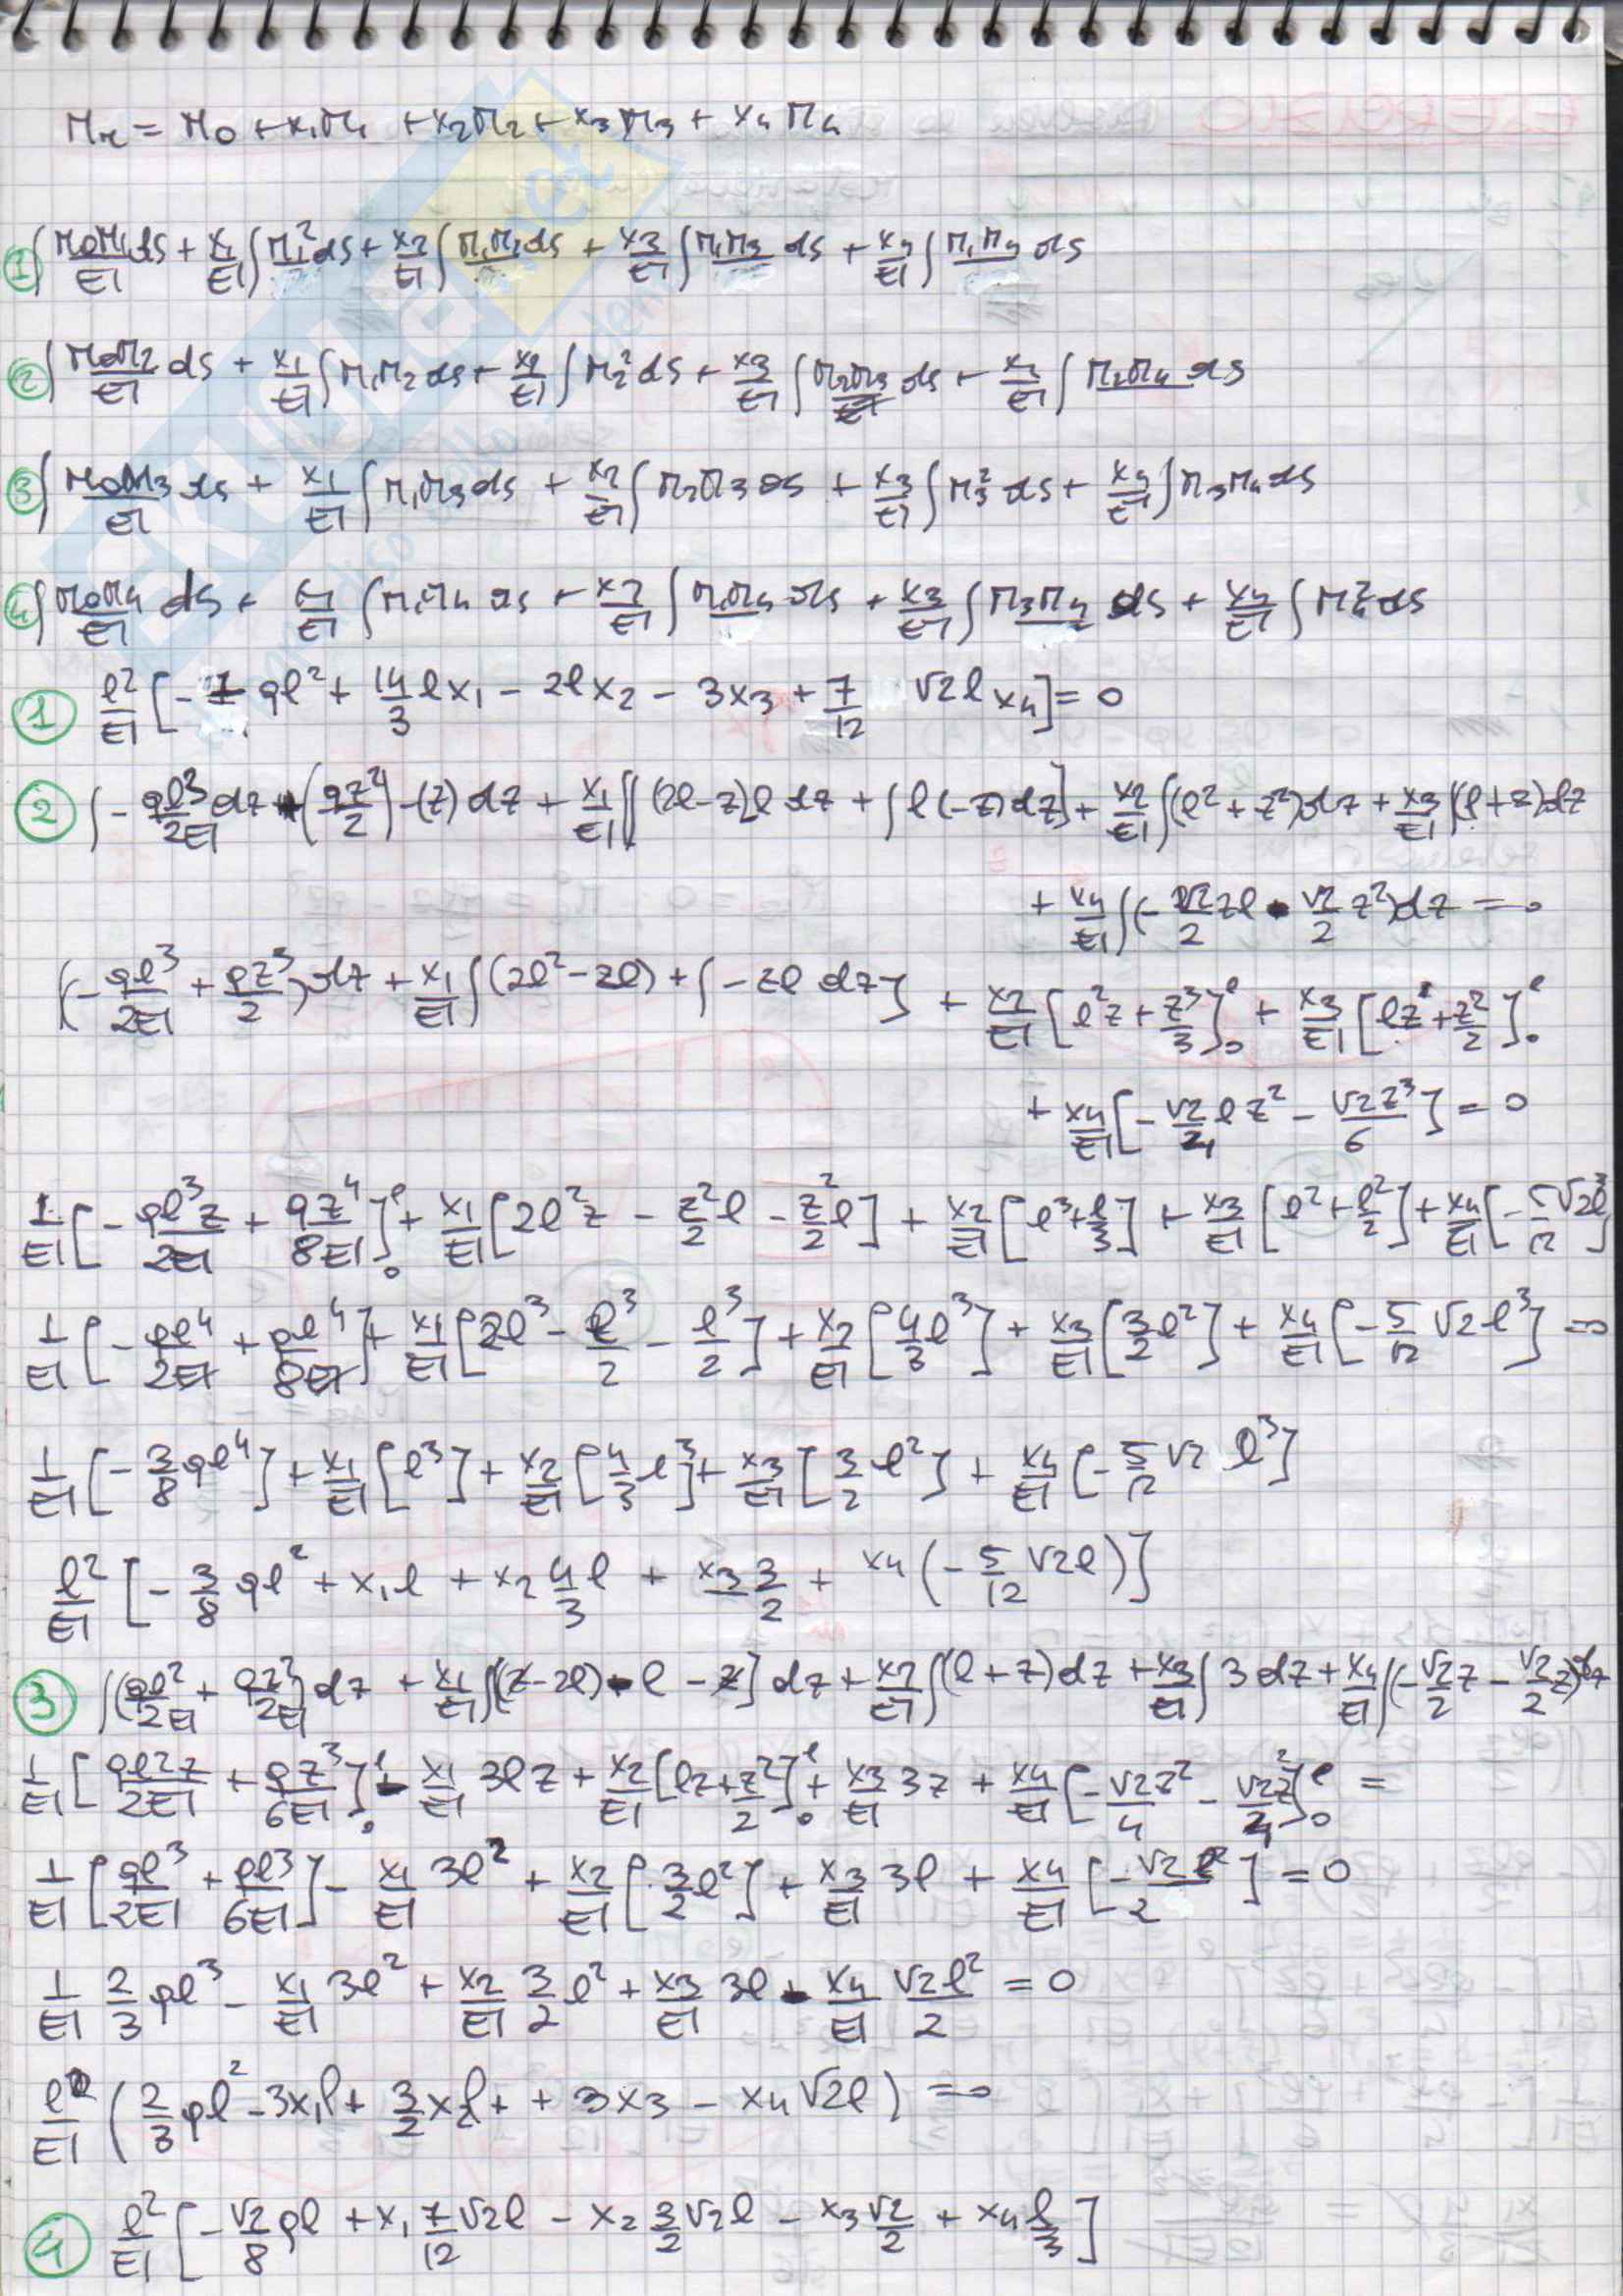 Mr = M0 + x1M1 + x2M2 + x3M3 + x4M4
① ∫ M0M1/EI ds + x1/EI ∫ M1² ds + x2/EI ∫ M1M2 ds + x3/EI ∫ M1M3 ds + x4/EI ∫ M1M4 ds
② ∫ M0M2/EI ds + x1/EI ∫ M1M2 ds + x2/EI ∫ M2² ds + x3/EI ∫ M2M3 ds + x4/EI ∫ M2M4 ds
③ ∫ M0M3/EI ds + x1/EI ∫ M1M3 ds + x2/EI ∫ M2M3 ds + x3/EI ∫ M3² ds + x4/EI ∫ M3M4 ds
④ ∫ M0M4/EI ds + x1/EI ∫ M1M4 ds + x2/EI ∫ M2M4 ds + x3/EI ∫ M3M4 ds + x4/EI ∫ M4² ds
① l²/EI [- ql² + 14/3 l x1 - 2l x2 - 3x3 + 7/12 √2 l x4] = 0
② ∫ - ql³/2EI dz + (qz²/2) - (z) dz + x1/EI [∫ (2l-z)l dz + ∫ l(-z) dz] + x2/EI ∫ (l² + z²) dz + x3/EI ∫ (l+z) dz
+ x4/EI ∫ (- √2/2 zl - √2/2 z²) dz = 0
(- ql³/2EI + qz³/2) dz + x1/EI ∫ (2l² - zl) + ∫ -zl dz] + x2/EI [l²z + z³/3]₀ˡ + x3/EI [lz + z²/2]₀ˡ
+ x4/EI [- √2/4 l z² - √2z³/6] = 0
1/EI [- ql³z/2EI + qz⁴/8EI]₀ˡ + x1/EI [2l²z - z²/2 l - z²/2 l] + x2/EI [l³ + l/3] + x3/EI [l² + l²/2] + x4/EI [- 5/12 √2l³]
1/EI [- ql⁴/2EI + ql⁴/8EI] + x1/EI [2l³ - l³/2 - l³/2] + x2/EI [4/3 l³] + x3/EI [3/2 l²] + x4/EI [- 5/12 √2 l³] = 0
1/EI [- 3/8 ql⁴] + x1/EI [l³] + x2/EI [4/3 l³] + x3/EI [3/2 l²] + x4/EI [- 5/12 √2 l³]
l²/EI [- 3/8 ql² + x1l + x2 4/3 l + x3 3/2 + x4 (- 5/12 √2l)]
③ ∫ (ql²/2EI + qz²/2EI) dz + x1/EI ∫ [(z-2l) - l - z] dz + x2/EI ∫ (l+z) dz + x3/EI ∫ 3 dz + x4/EI ∫ (- √2/2 z - √2/2 z) dz
1/EI [ql²z/2EI + qz³/6EI]₀ˡ - x1/EI 3lz + x2/EI [lz + z²/2]₀ˡ + x3/EI 3z + x4/EI [- √2z²/4 - √2z²/4]₀ˡ =
1/EI [ql³/2EI + ql³/6EI] - x1/EI 3l² + x2/EI [3/2 l²] + x3/EI 3l + x4/EI [- √2 l²/2] = 0
1/EI 2/3 ql³ - x1/EI 3l² + x2/EI 3/2 l² + x3/EI 3l - x4/EI √2l²/2 = 0
l/EI (2/3 ql² - 3x1l + 3/2 x2l + + 3x3 - x4 √2l) = 0
④ l²/EI [- √2/8 ql + x1 7/12 √2l - x2 3/2 √2l - x3 √2/2 + x4 l/3]